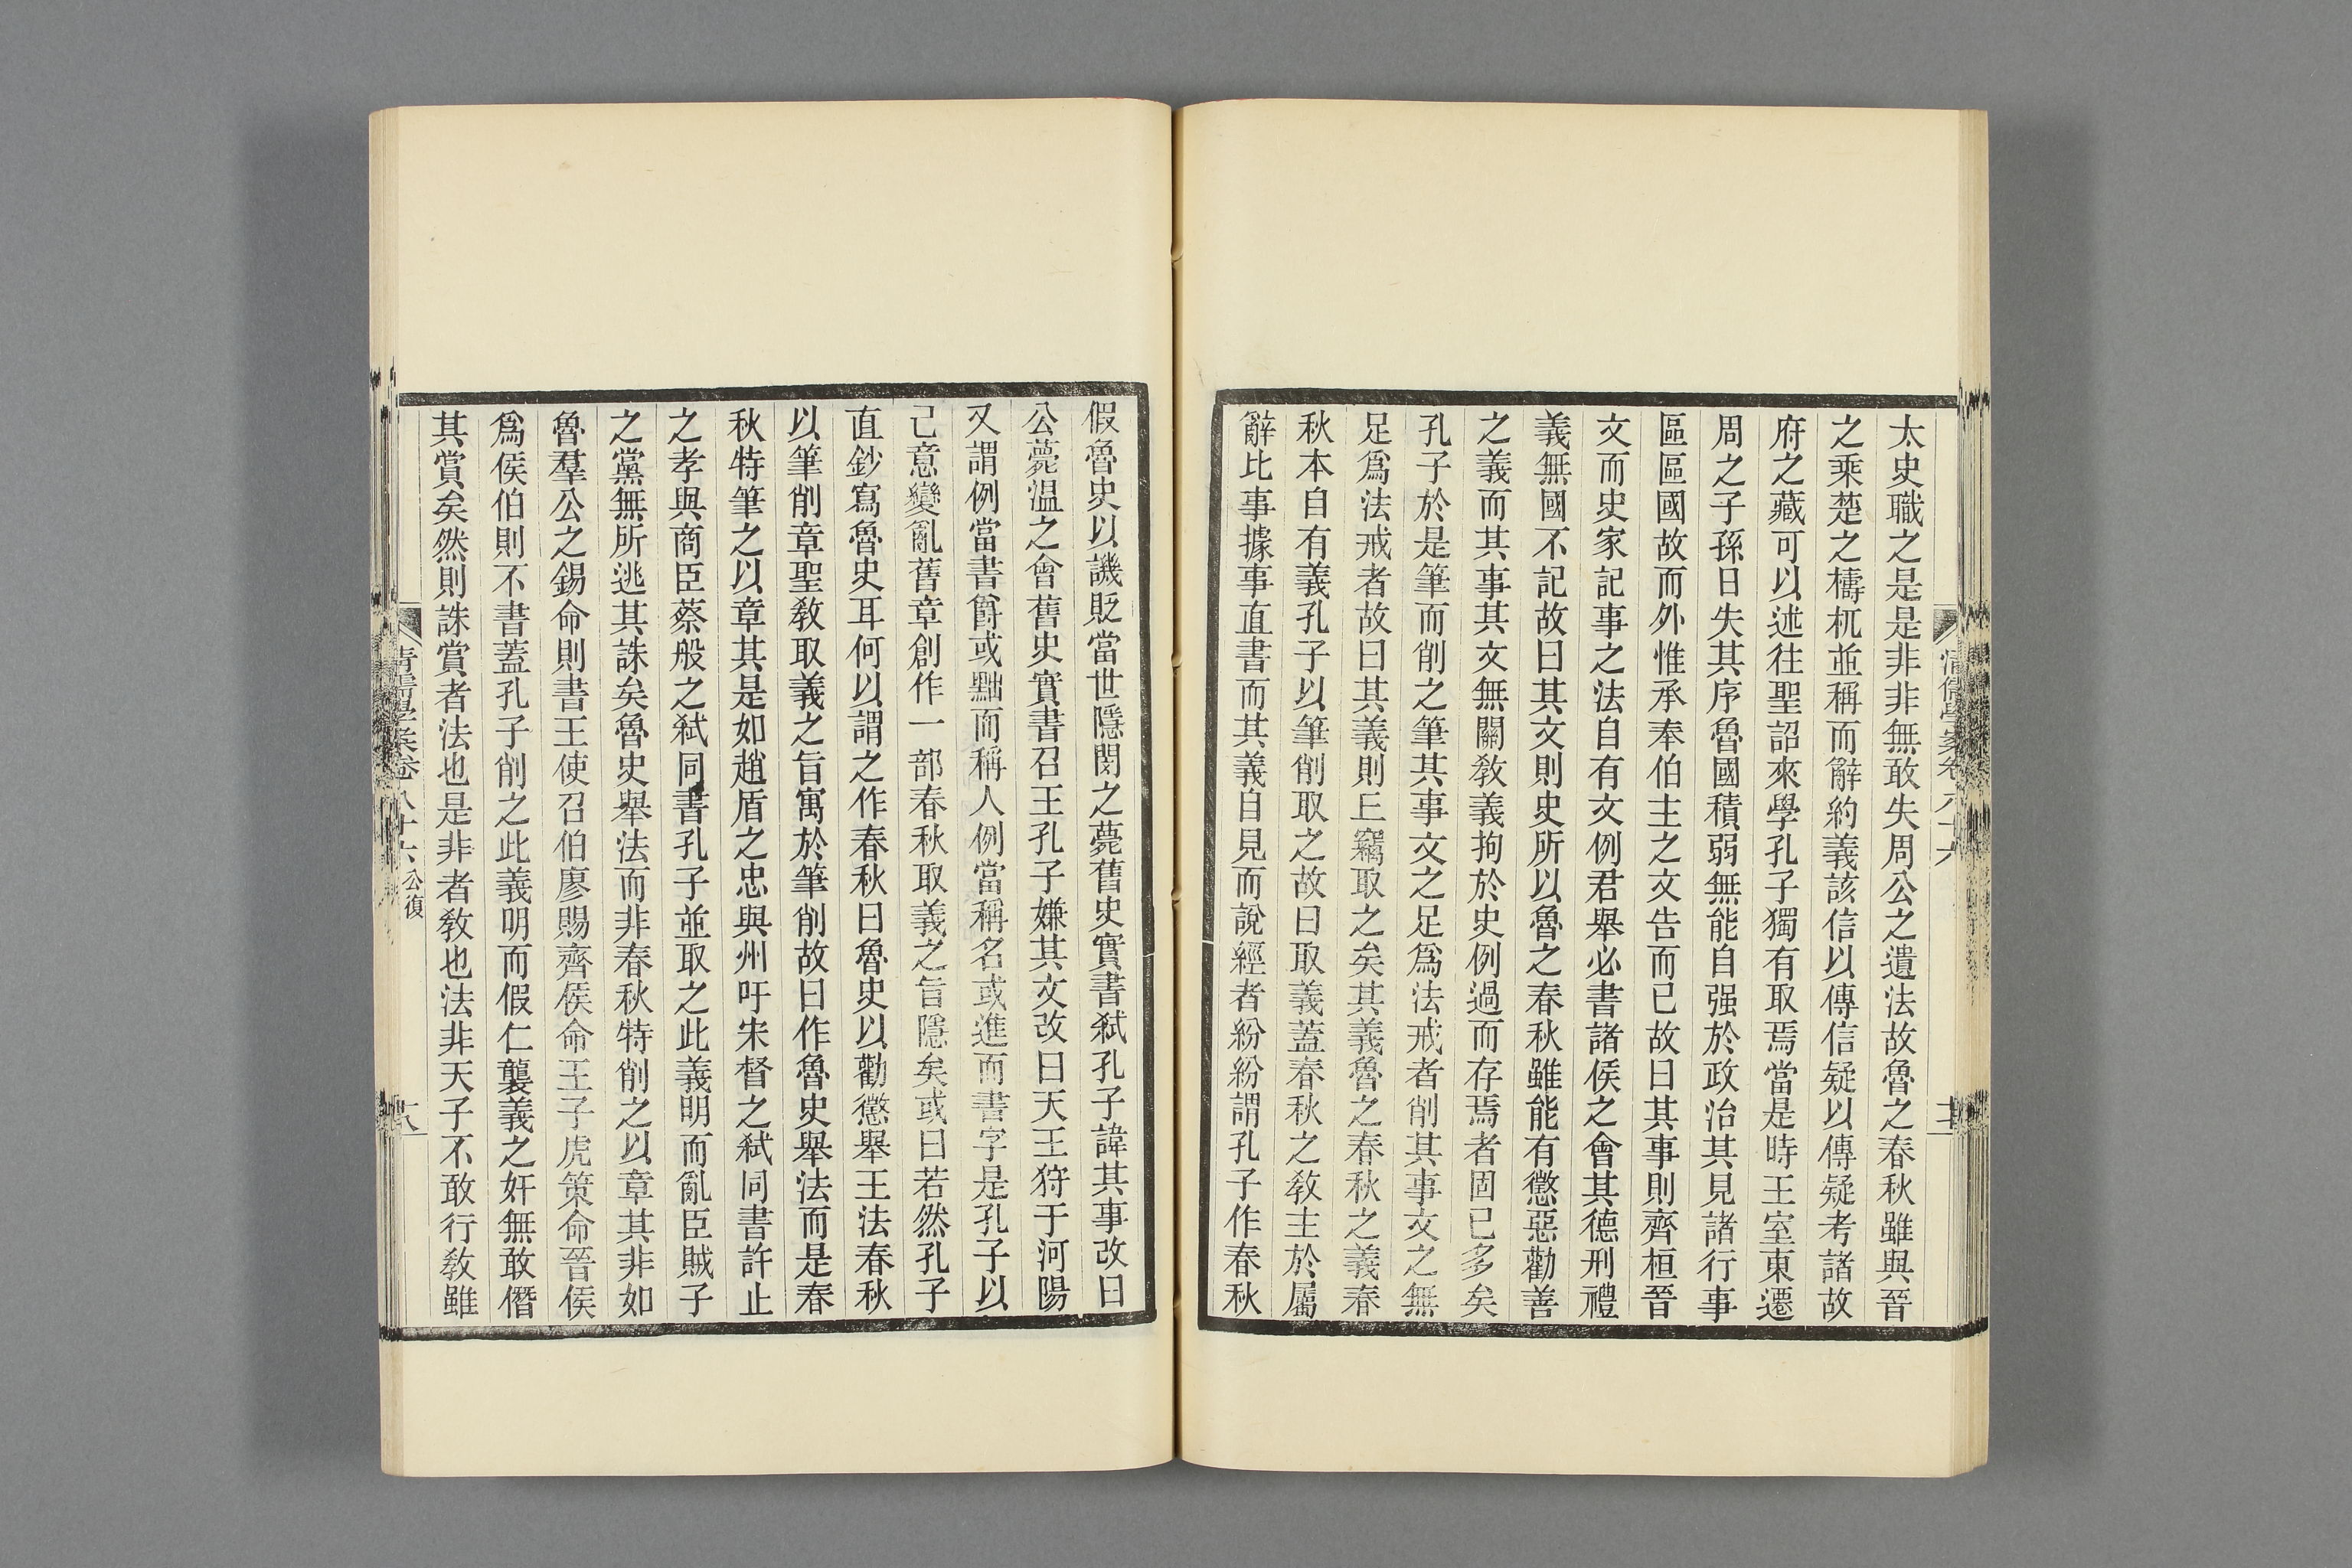 太史職之是是非非無敢失周公之遺法故魯之春秋雖與晉
之乘楚之檮杌並稱而辭約義該信以傳信疑以傳疑考諸故
府之藏可以述往聖詔來學孔子獨有取焉當是時王室東遷
周之子孫日失其序魯國積弱無能自强於政治其見諸行事
區區國故而外惟承奉伯主之文告而已故曰其事則齊桓晉
文而史家記事之法自有文例君舉必書諸侯之會其德刑禮
義無國不記故曰其文則史所以魯之春秋雖能有懲惡勸善
之義而其事其文無關敎義拘於史例過而存焉者固已多矣
孔子於是筆而削之筆其事文之足爲法戒者削其事文之無
足爲法戒者故曰其義則丘竊取之矣其義魯之春秋之義春
秋本自有義孔子以筆削取之故曰取義蓋春秋之敎主於屬
辭比事據事直書而其義自見而說經者紛紛謂孔子作春秋
清儒學案卷八十六
假魯史以譏貶當世隱閔之薨舊史實書弑孔子諱其事改曰
公薨溫之會舊史實書召王孔子嫌其文改曰天王狩于河陽
又謂例當書爵或黜而稱人例當稱名或進而書字是孔子以
己意變亂舊章創作一部春秋取義之旨隱矣或曰若然孔子
直鈔寫魯史耳何以謂之作春秋曰魯史以勸懲舉王法春秋
以筆削章聖敎取義之旨寓於筆削故曰作魯史舉法而是春
秋特筆之以章其是如趙盾之忠與州吁宋督之弑同書許止
之孝與商臣蔡般之弑同書孔子並取之此義明而亂臣賊子
之黨無所逃其誅矣魯史舉法而非春秋特削之以章其非如
魯羣公之錫命則書王使召伯廖賜齊侯命王子虎策命晉侯
爲侯伯則不書蓋孔子削之此義明而假仁襲義之奸無敢僭
其賞矣然則誅賞者法也是非者敎也法非天子不敢行敎雖
清儒學案卷八十六 公復
十八